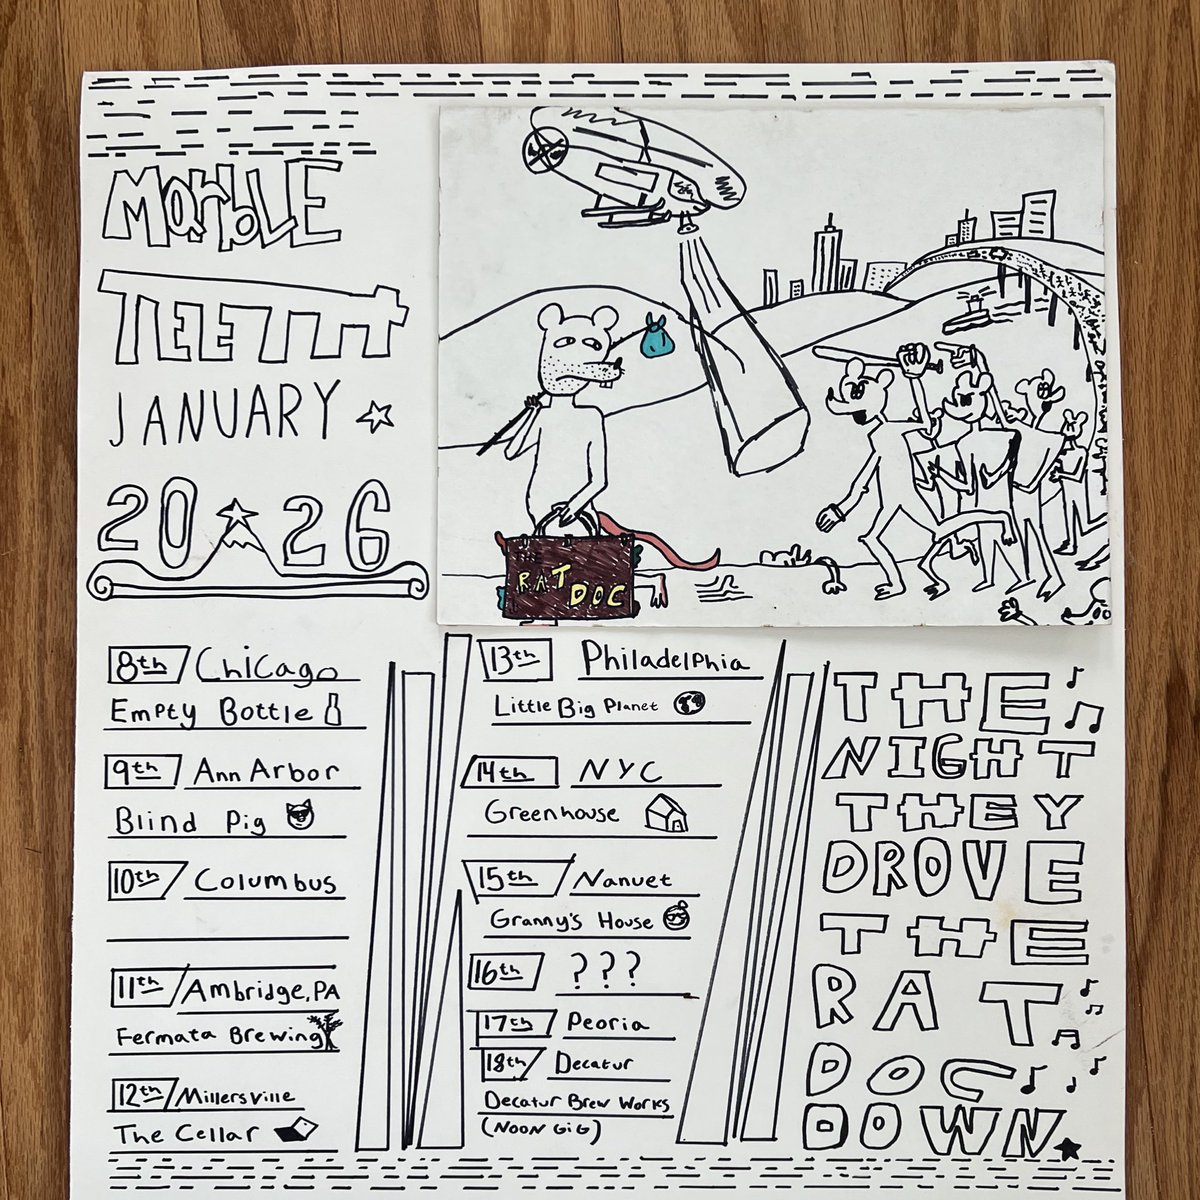 MarbLE
TEETH
JANUARY
2026
RAT
DOC
8th Chicago
Empty Bottle
9th Ann Arbor
Blind Pig
10th Columbus
11th Ambridge, PA
Fermata Brewing
12th Millersville
The Cellar
13th Philadelphia
Little Big Planet
14th NYC
Greenhouse
15th Nanuet
Granny's House
16th ???
17th Peoria
18th Decatur
Decatur Brew Works
(NOON GIG)
THE
NIGHT
THEY
DROVE
THE
RAT
DOC
DOWN